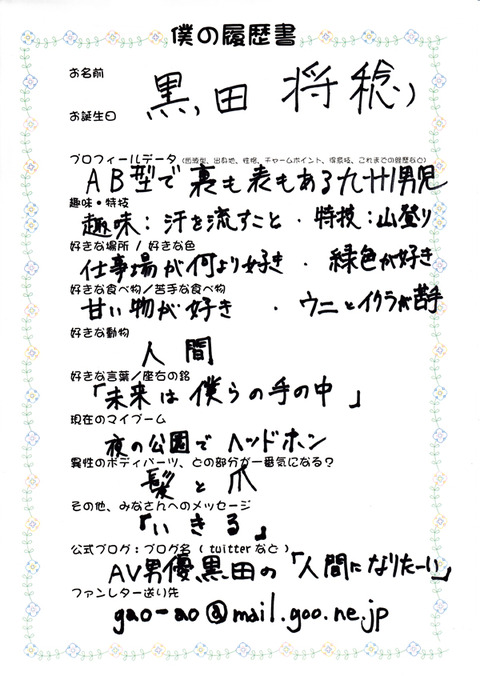 僕の履歴書
お名前
黒田 将稔
お誕生日
プロフィールデータ(血液型、出身地、性格、チャームポイント、得意技、これまでの経歴など)
AB型で裏も表もある九州男児
趣味・特技
趣味:汗を流すこと・特技:山登り
好きな場所 / 好きな色
仕事場が何より好き ・ 緑色が好き
好きな食べ物/苦手な食べ物
甘い物が好き ・ ウニとイクラが苦手
好きな動物
人間
好きな言葉/座右の銘
「未来は僕らの手の中」
現在のマイブーム
夜の公園でヘッドホン
異性のボディパーツ、どの部分が一番気になる?
髪と爪
その他、みなさんへのメッセージ
「いきる」
公式ブログ:ブログ名 ( twitterなど )
AV男優黒田の「人間になりたーい」
ファンレター送り先
gao-ao@mail.goo.ne.jp